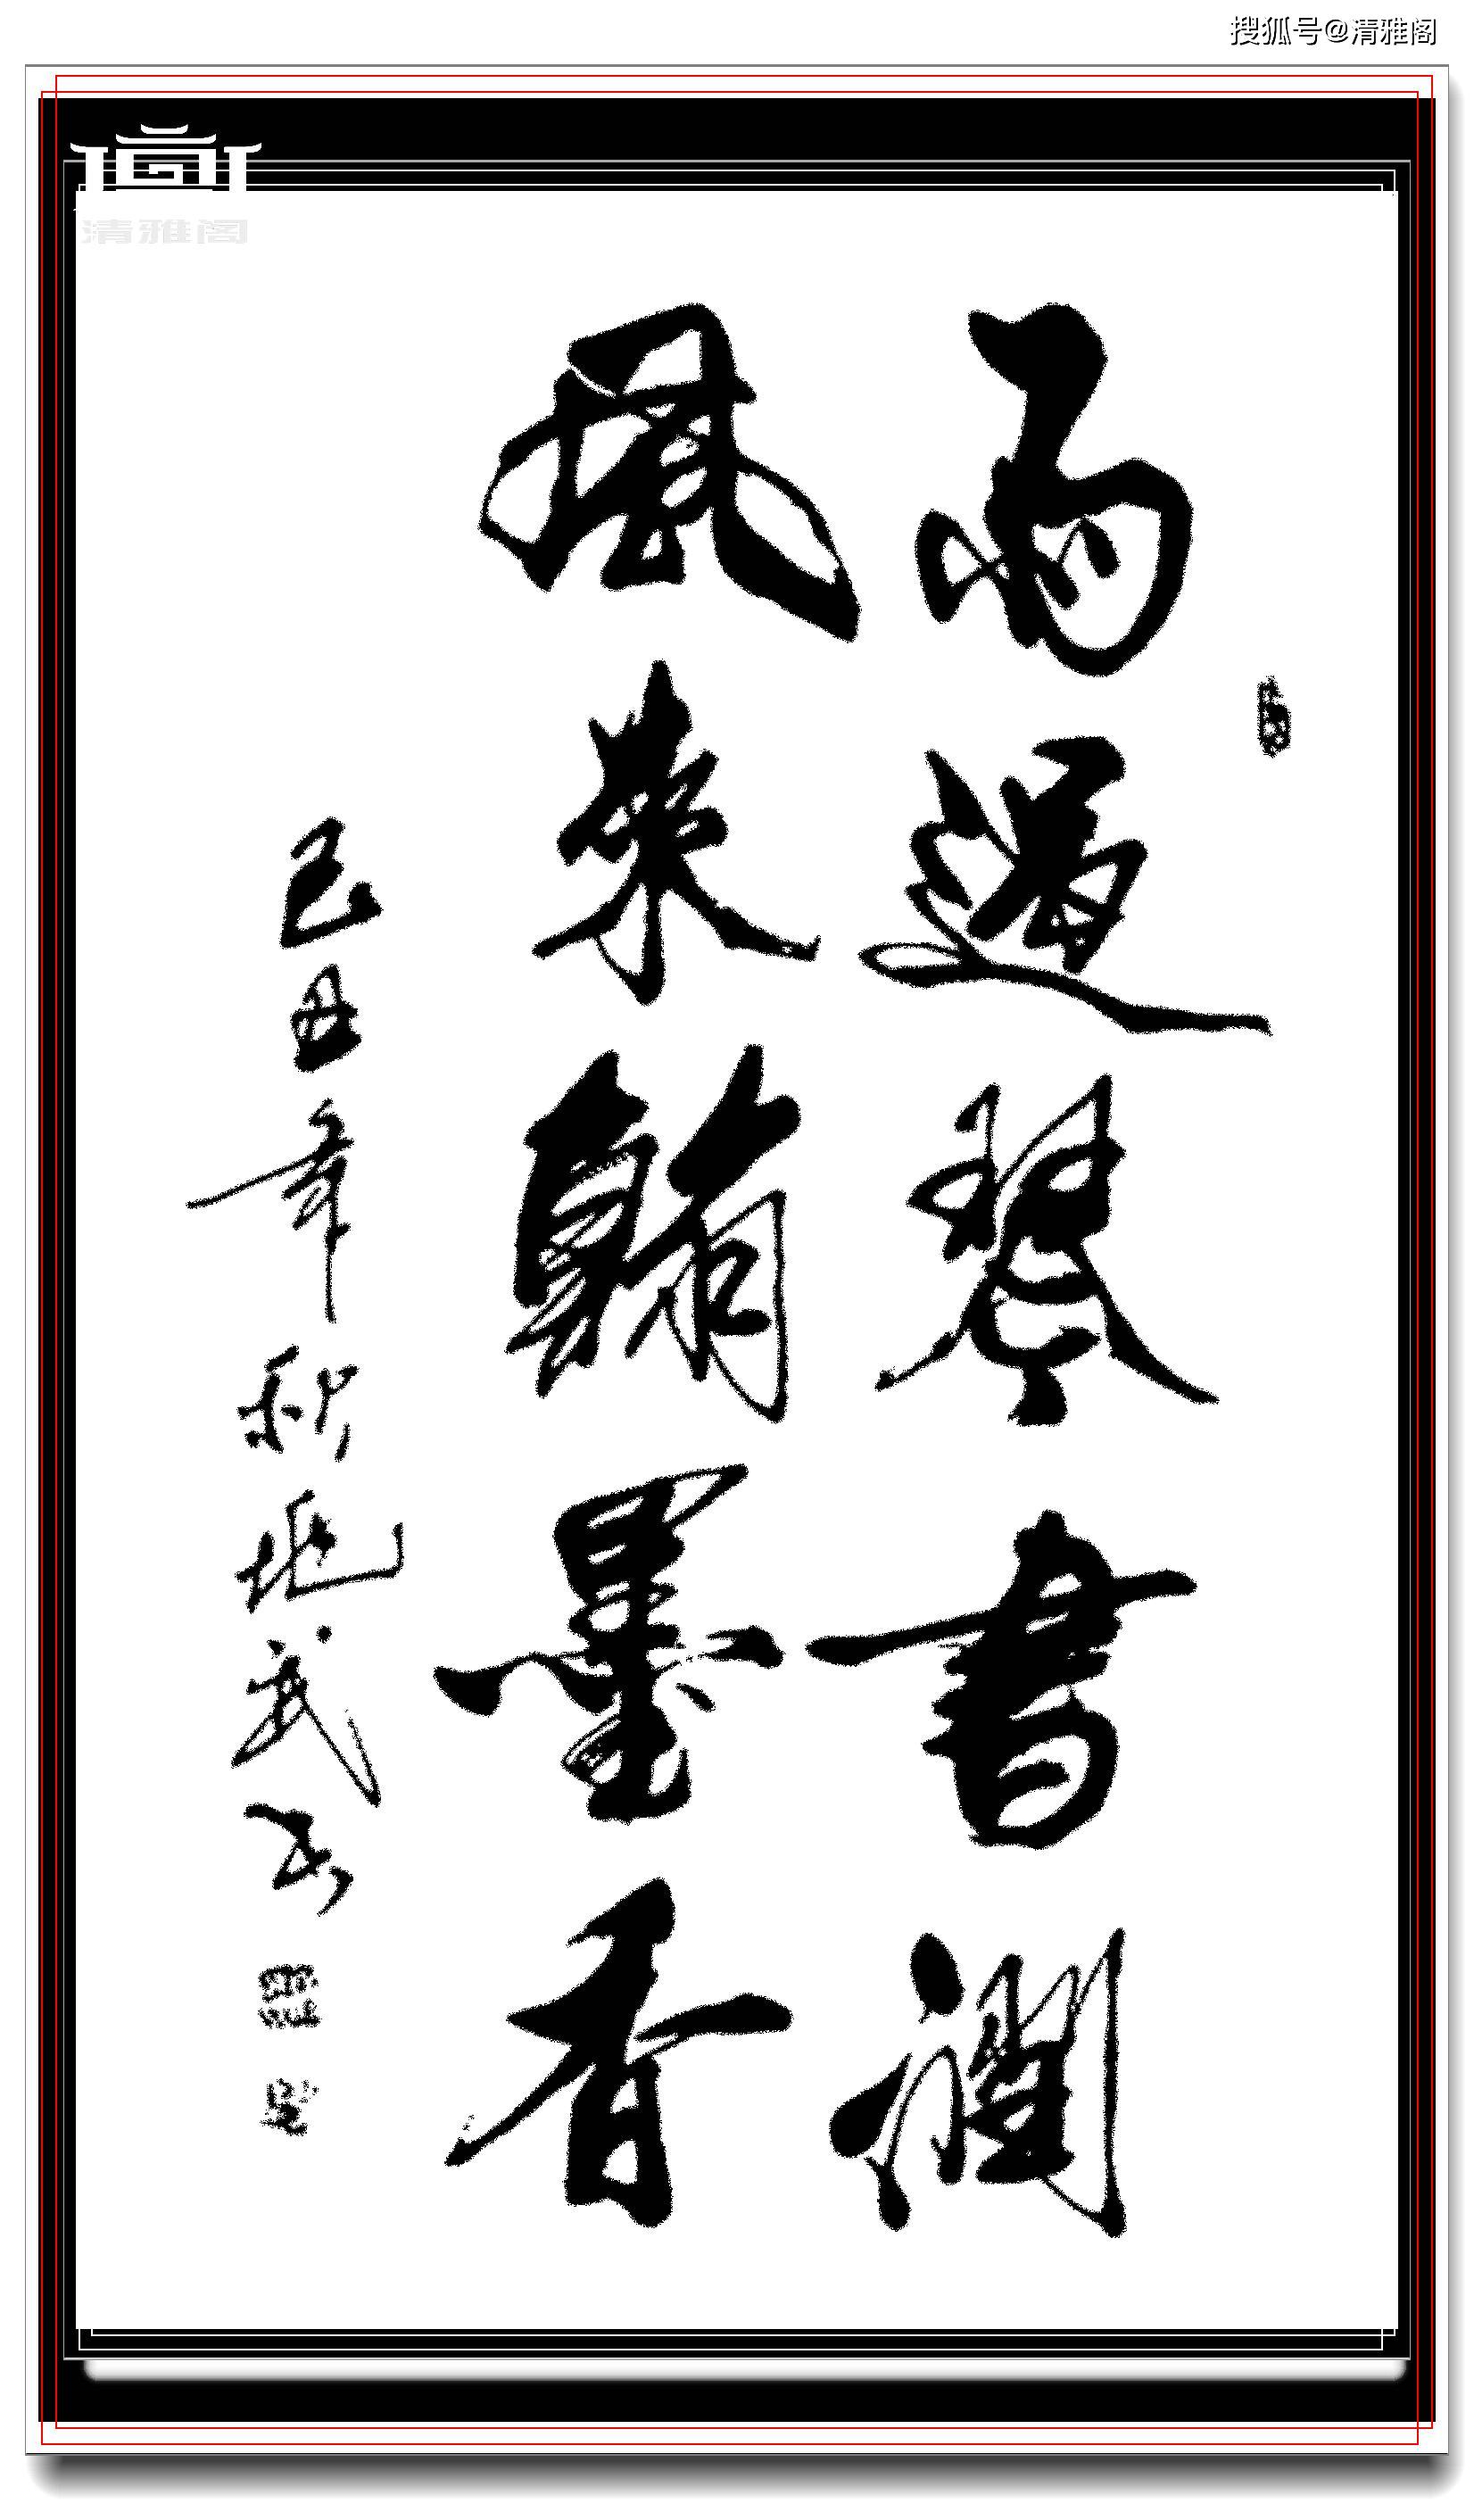 搜狐号@清雅阁
清雅阁
雨過琴書潤
風来翰墨香
己丑年秋兆武书